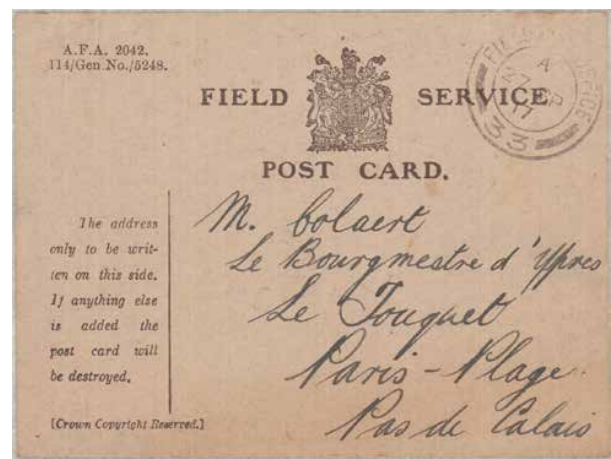 A.F.A. 2042.
114/Gen.No./5248.
FIELD SERVICE
POST CARD.
A
17
33
The address
only to be writ-
ten on this side.
If anything else
is added the
post card will
be destroyed.
[Crown Copyright Reserved.]
M. Colaert
Le Bourgmestre d'Ypres
Le Touquet
Paris-Plage
Pas de Calais